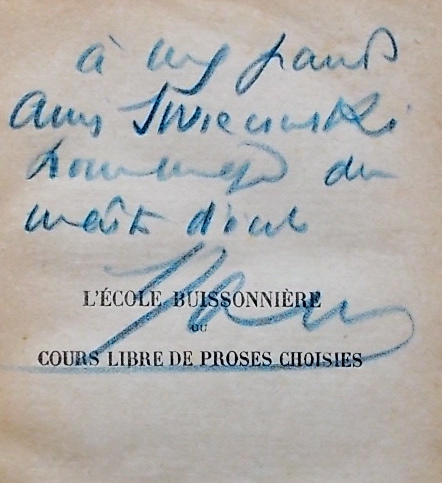 à mes grands
Amis Swiecinski
hommage du
maître d'école
L'ÉCOLE BUISSONNIÈRE
OU
COURS LIBRE DE PROSES CHOISIES